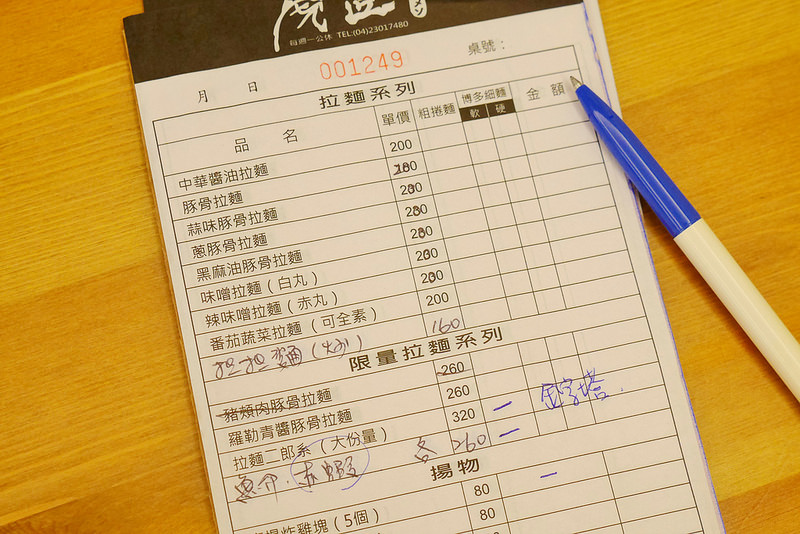 每週一公休 TEL:(04)23017480
001249
月 日 桌號：
拉麵系列
品 名 單價 粗捲麵 博多細麵 軟 硬 金 額
中華醬油拉麵 200
豚骨拉麵
蒜味豚骨拉麵
蔥豚骨拉麵
黑麻油豚骨拉麵
味噌拉麵（白丸）
辣味噌拉麵（赤丸）
番茄蔬菜拉麵（可全素） 200
担担麵 160
限量拉麵系列
豬頰肉豚骨拉麵 260
羅勒青醬豚骨拉麵 260
拉麵二郎系（大份量） 320 一 金字塔.
魚介.赤蝦 各 260 一
揚物
80 一
爆炸雞塊（5個） 80